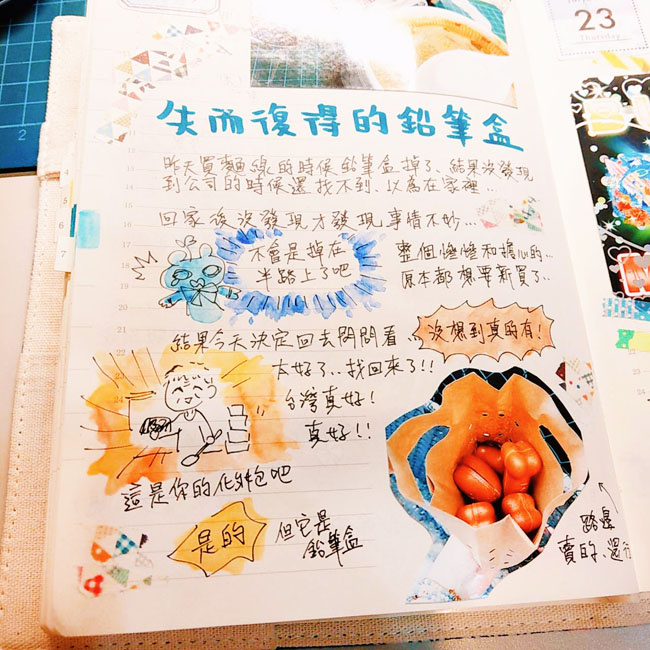 失而復得的鉛筆盒
23
Thursday
昨天買麵線的時候鉛筆盒掉了、結果沒發現
到公司的時候還找不到、以為在家裡...
回家後沒發現才發現事情不妙...
不會是掉在
半路上了吧
整個燈燈和擔心的...
原本都想要新買了...
結果今天決定回去問問看...
沒想到真的有!
太好了..找回來了!!
台灣真好!
真好!!
這是你的化妝包吧
是的
但它是
鉛筆盒
路邊
賣的、還行